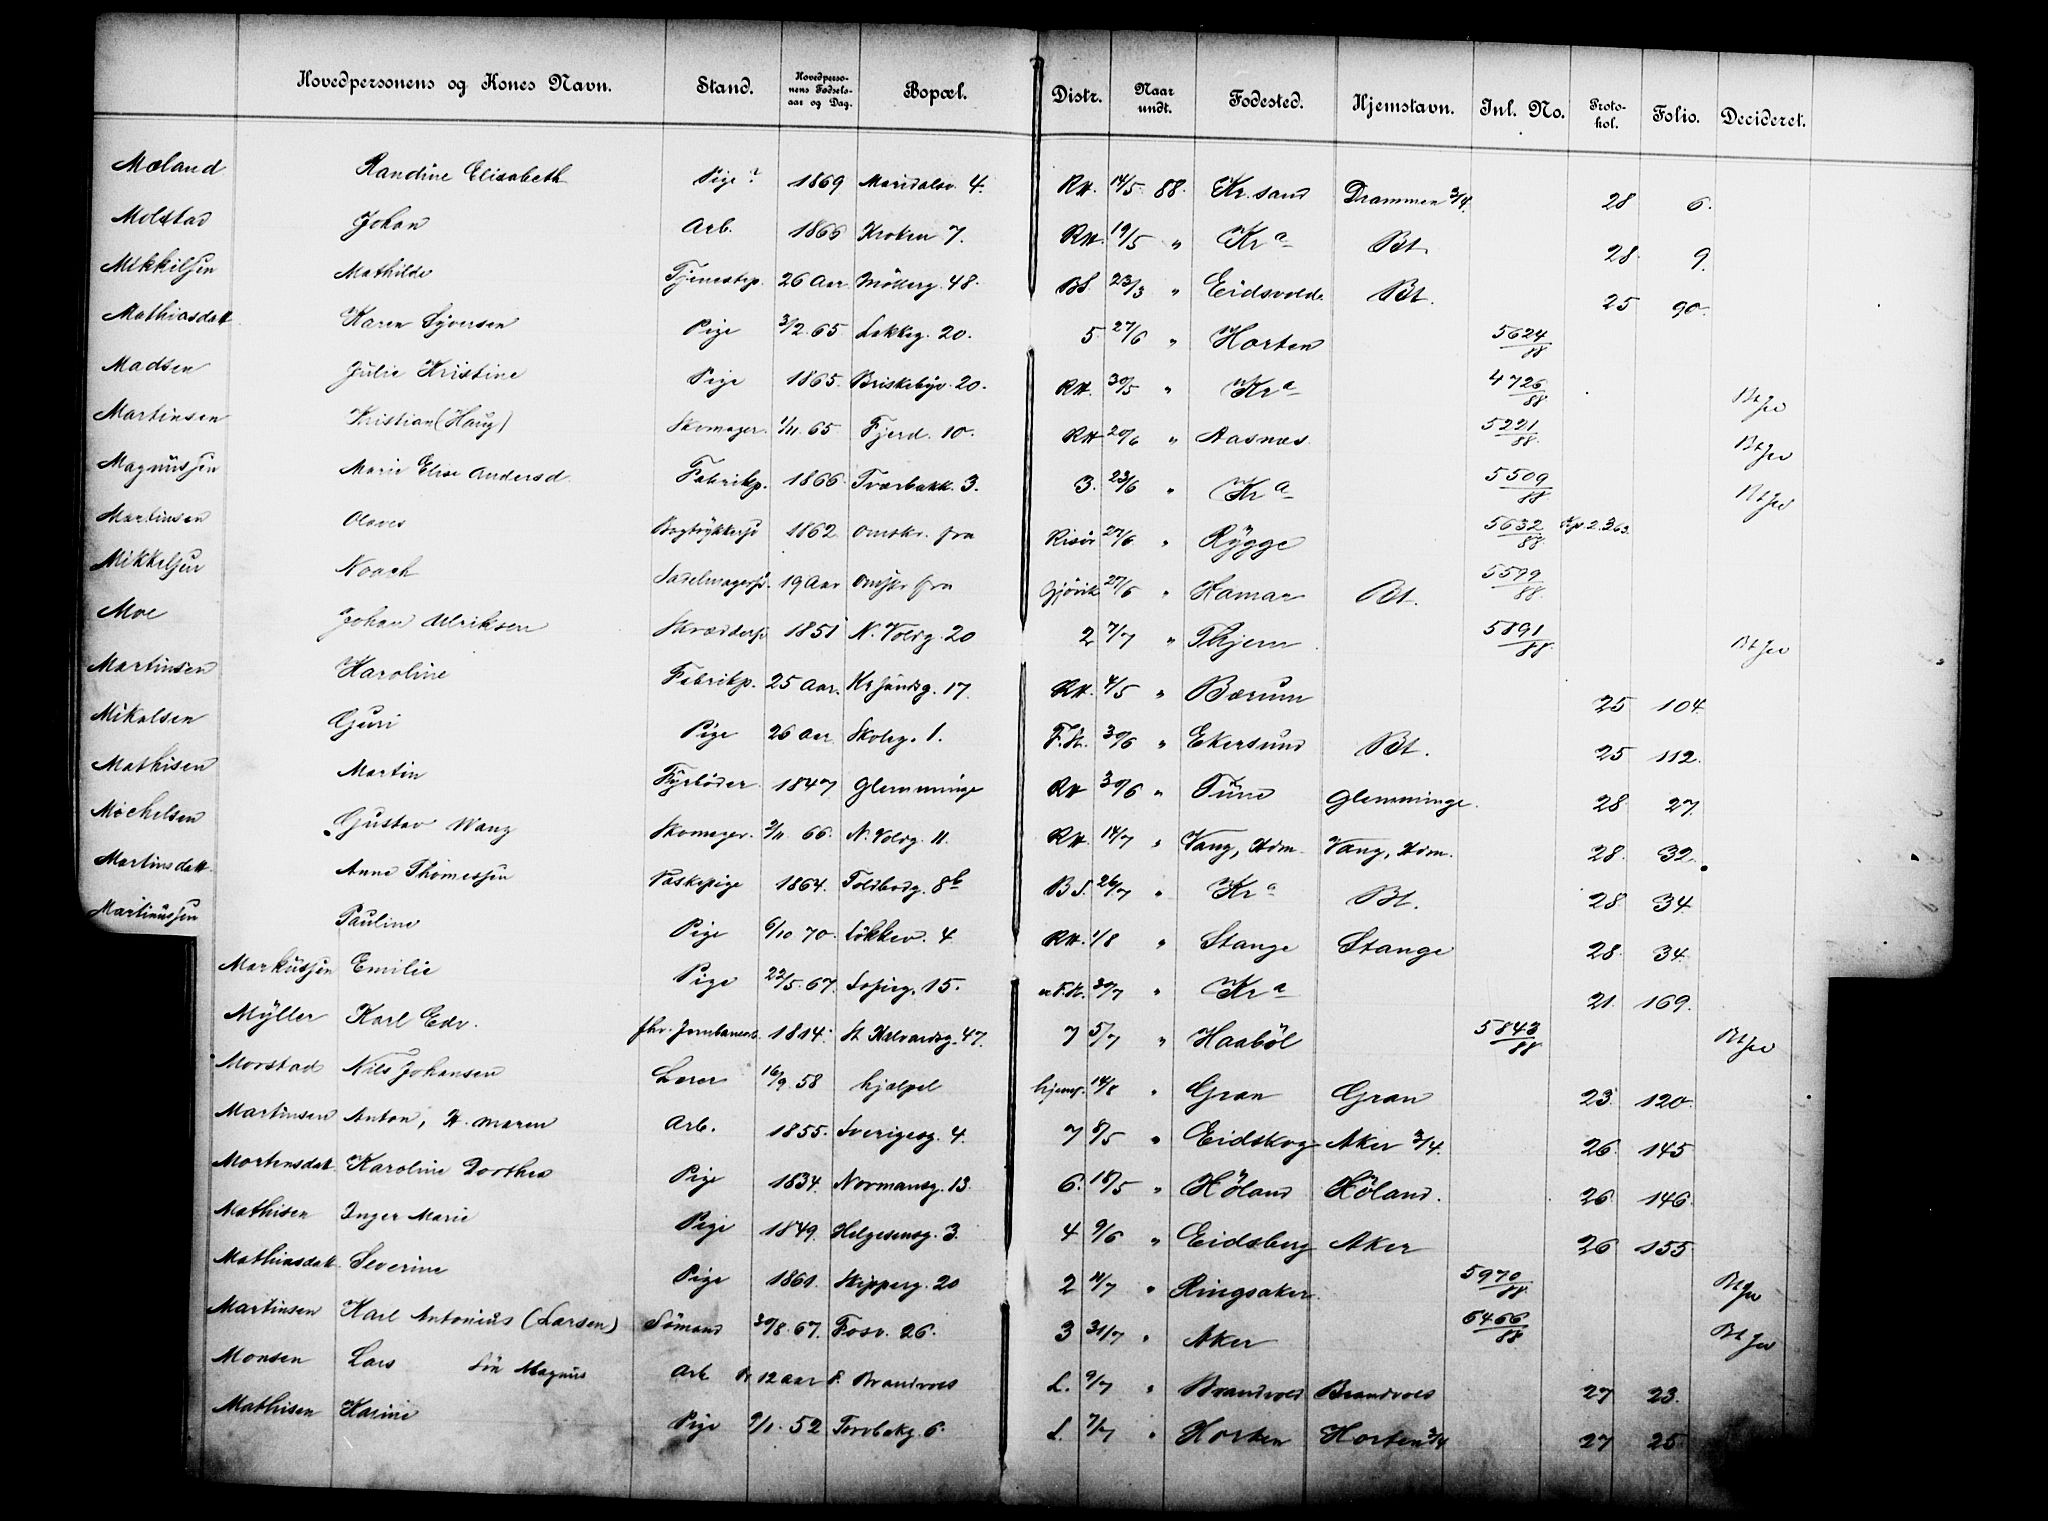 Hovedpersonens og Kones Navn. Stand. Hovedperso-nens Fødsels-aar og Dag. Bopæl. Distr. Naar undt. Fødested. Hjemstavn. Inl. No. Proto-kol. Folio. Decideret.
Mæland Randine Elisabeth Pige 1869 Maridalsv. 4. RH. 14/5 88. Kr.sand Drammen 3/4. 28 6.
Molstad Johan Arb. 1866 Kroken 7. RH. 19/5 " Kra Bt. 28 9.
Mikkilsen Mathilde Tjenestep. 26 Aar Möllerg. 48. BS. 23/3 " Eidsvold Bt. 25 90.
Mathiasdatt. Karen Syversen Pige 3/2 65. Lakkeg. 20. 5. 27/6 " Horten 5624/88
Madsen Julie Kristine Pige 1865. Briskebyv. 20. RH. 30/5 " Kra 4726/88
Martinsen Kristian (Haug) Skomager. 1/11 65. Fjerd. 10. RH 20/6 " Aasnæs 5221/88
Magnussen Marie Elise Andersd. Fabrikp. 1866. Tværbakk. 3. 3. 23/6 " Kra 5509/88
Martinsen Olaves Bogtrykkersv 1862. Omskr. fra Risör 27/6 " Rygge 5632/88 2. 363.
Mikkelsen Noach Sadelmagersv. 19 Aar Omskr fra Gjövik 27/6 " Hamar Bt. 5599/88
Moe Johan Ulriksen Skræddersv 1851 N. Voldg. 20 2 7/7 " 5891/88
Martinsen Karoline Fabrikp. 25 Aar. Kr sandsg. 17. RH. 4/5 " Bærum 25 104.
Mikalsen Guri Pige 26 Aar Skoleg. 1. F.K. 30/6 " Ekersund Bt. 25 112.
Mathisen Martin Fyrböder 1847 Glemminge RH 30/6 " Tune Glemminge. 28. 27.
Michelsen Gustav Wang Skomager. 2/11 66. N. Voldg. 11. RH. 14/7 " Vang, Hdm. Vang, Hdm. 28. 32.
Martinsdatt. Anne Thomessen Vaskepige 1864. Toldbodg. 8b B.S. 26/7 " Kra Bt. 28. 34.
Martinussen Pauline Pige 6/10 70. Lökkev. 4 RH. 1/8 " Stange Stange 28. 34.
Markussen Emilie Pige 22/5. 67. Sofieg. 15. F.K. 30/7 " Kra 21. 169.
Myller Karl Edv. fhv. Jernbaneb. 1814. St Halvardsg. 47. 7 5/7 " Haaböl 5843/88
Morstad Nils Johansen Lærer 16/9 58 hjælpel hjemf. 14/8 " Gran Gran 23. 120.
Martinsen Anton, H. Maren Arb. 1855. Sverigesg. 4. 7 8/5 " Eidskog Aker 3/4. 26. 145
Mortensdat. Karoline Dorthea Pige 1834. Normansg. 13. 6. 18/5 " Höland Höland. 26. 146.
Mathisen Inger Marie Pige 1849. Helgesensg. 3. 4 9/6 " Eidsberg Aker 26 155
Mathiasdatt. Severine Pige 1861. Skipperg. 20 2 11/7 " Ringsaker. 5970/88
Martinsen Karl Antonius (Larsen) Sömand 30/8. 67. Fosv. 26. 3 31/7 " Aker 6466/88
Monsen Lars Sön Magnus Arb 12 aar Brandvold L. 9/7 " Brandvold Brandvold 27 23.
Mathisen Karine Pige 9/1. 52. Torvbakg. 6. L. 7/7 " Horten Horten 3/4 27 25.